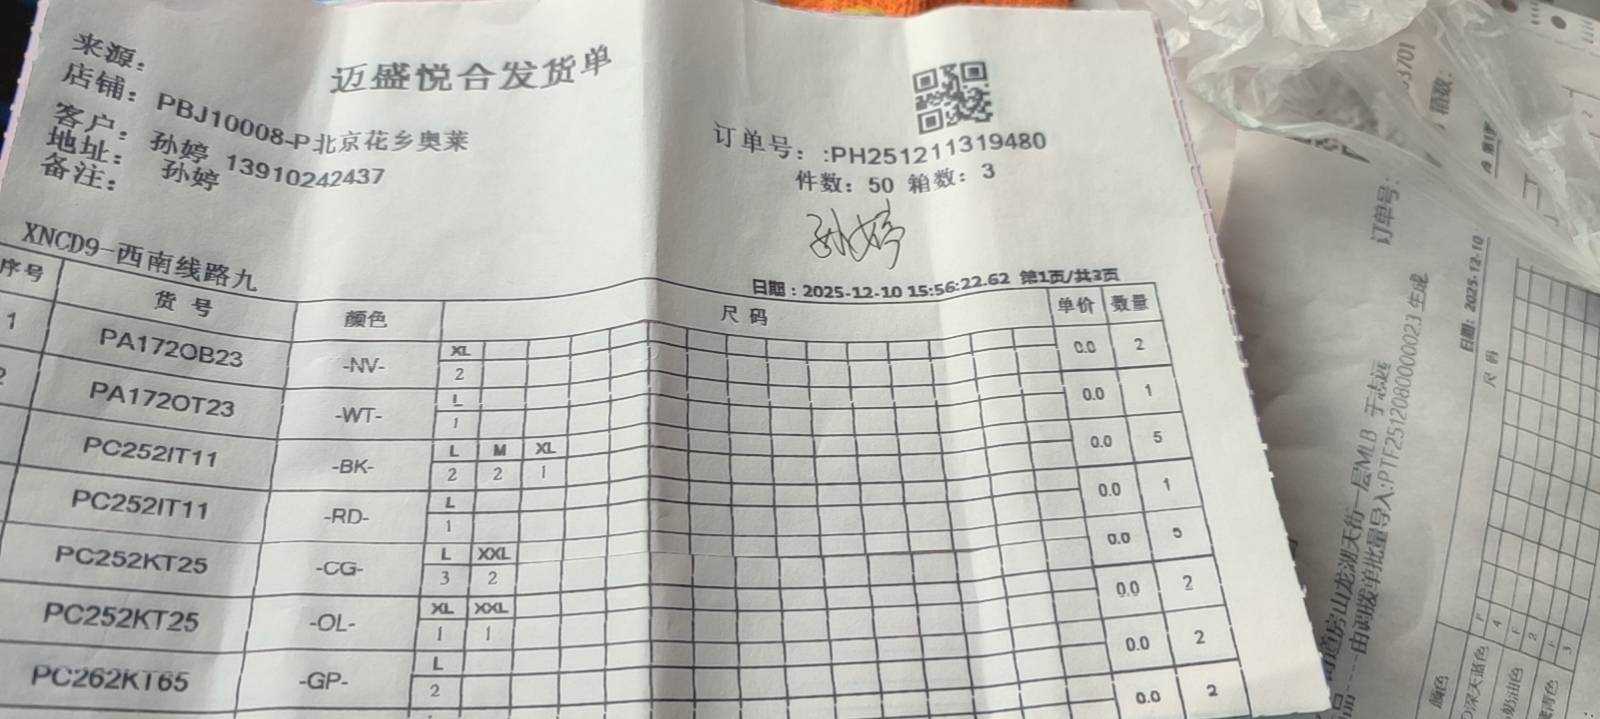 迈盛悦合发货单
来源：
店铺：PBJ10008-P北京花乡奥莱
客户：孙婷 13910242437
地址：孙婷
备注：
订单号：:PH251211319480
件数：50 箱数：3
孙婷
XNCD9-西南线路九
日期：2025-12-10 15:56:22.62 第1页/共3页
序号 货号 颜色 尺码 单价 数量
1 PA172OB23 -NV- XL 0.0 2
2
2 PA172OT23 -WT- L 0.0 1
1
PC252IT11 -BK- L M XL 0.0 5
2 2 1
PC252IT11 -RD- L 0.0 1
1
PC252KT25 -CG- L XXL 0.0 5
3 2
PC252KT25 -OL- XL XXL 0.0 2
1 1
PC262KT65 -GP- L 0.0 2
2
0.0 2
03701
箱数：
订单号：
日期：2025-12-10
尺码
道房山龙湖天街一层MLB 于志远
由调拨单批量导入:PTF251208000023 生成
颜色
深天蓝色
奶油色